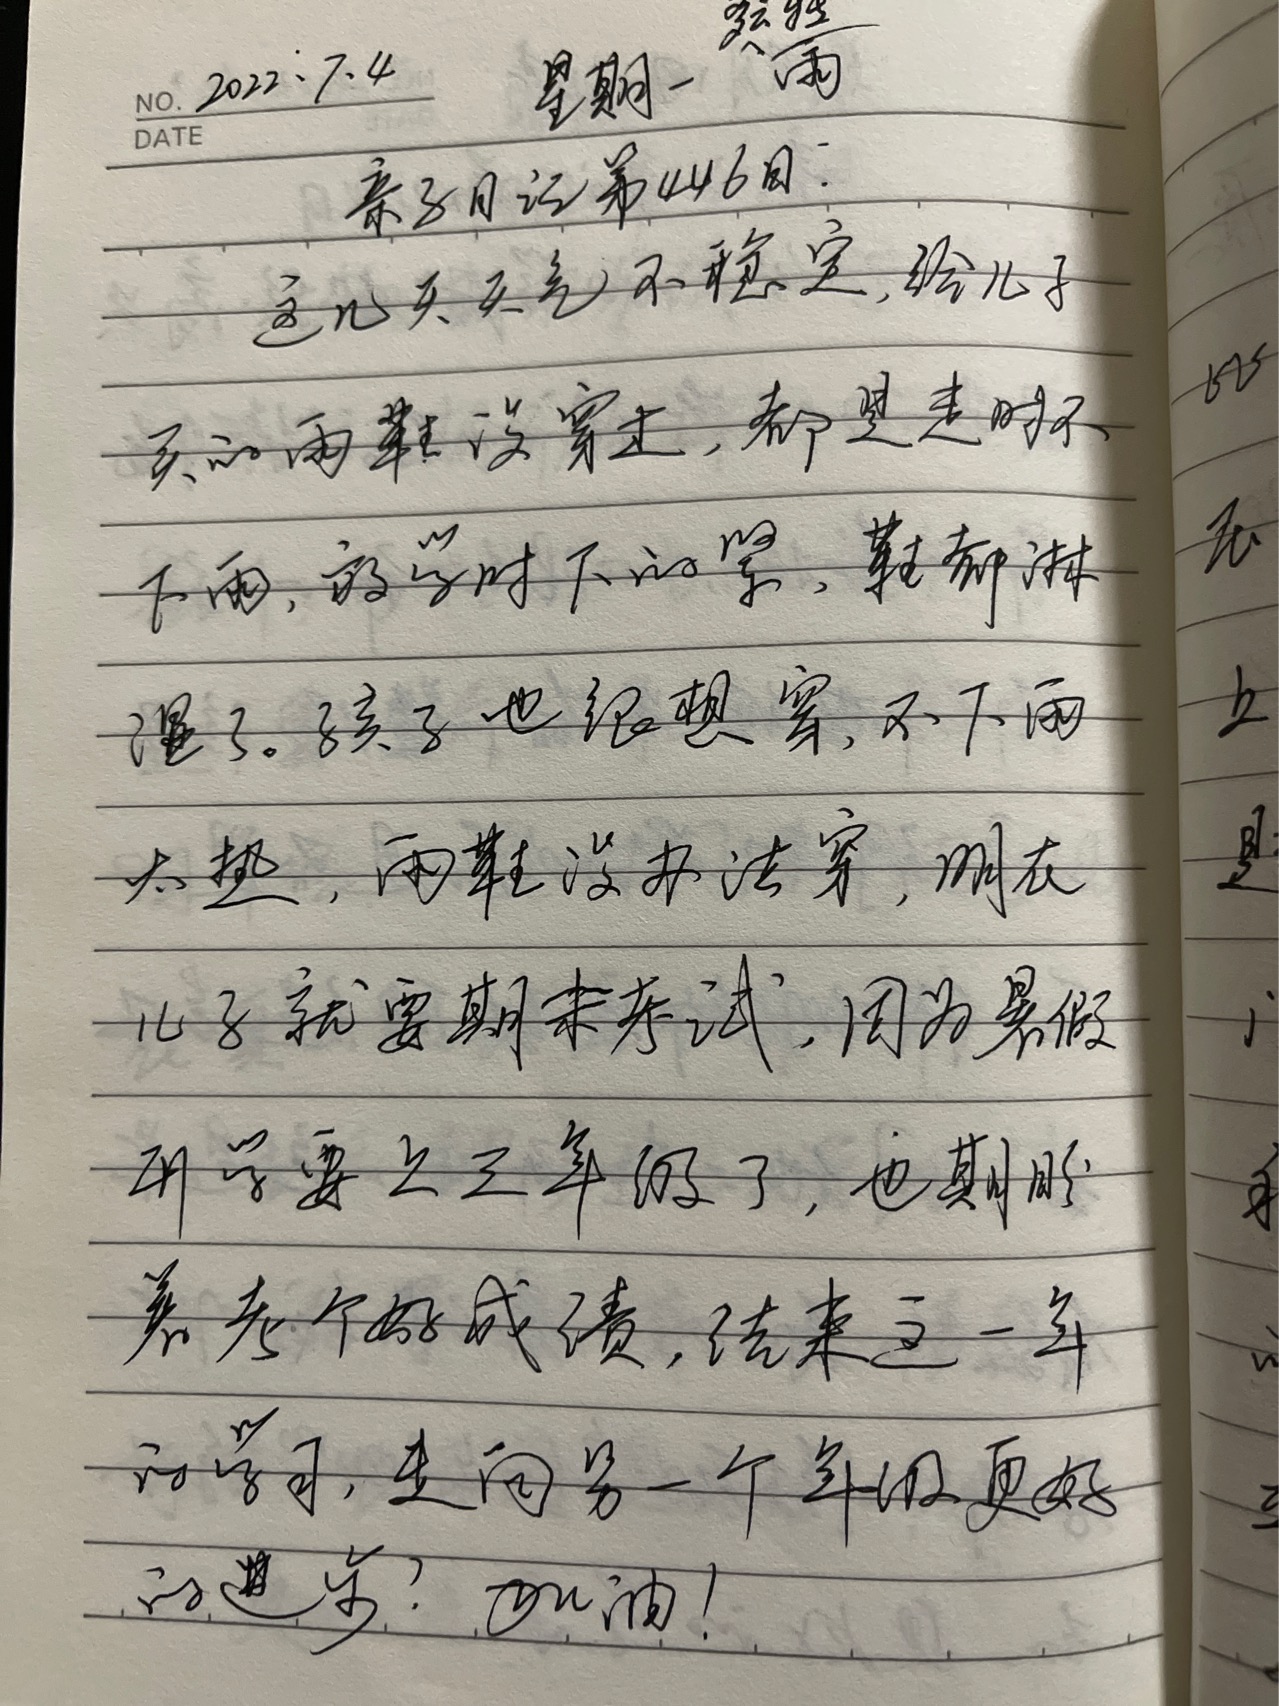 NO. 2022.7.4 星期一 雨
DATE
亲子日记第446日:
这几天天气不稳定,给儿子
买的雨鞋没穿过,都是走时不
下雨,放学时下的紧,鞋都淋
湿了。孩子也很想穿,不下雨
太热,雨鞋没办法穿,明在
儿子就要期末考试,因为暑假
开学要上三年级了,也期盼
着考个好成绩,结束这一年
的学习,走向另一个年级更好
的进步?加油!